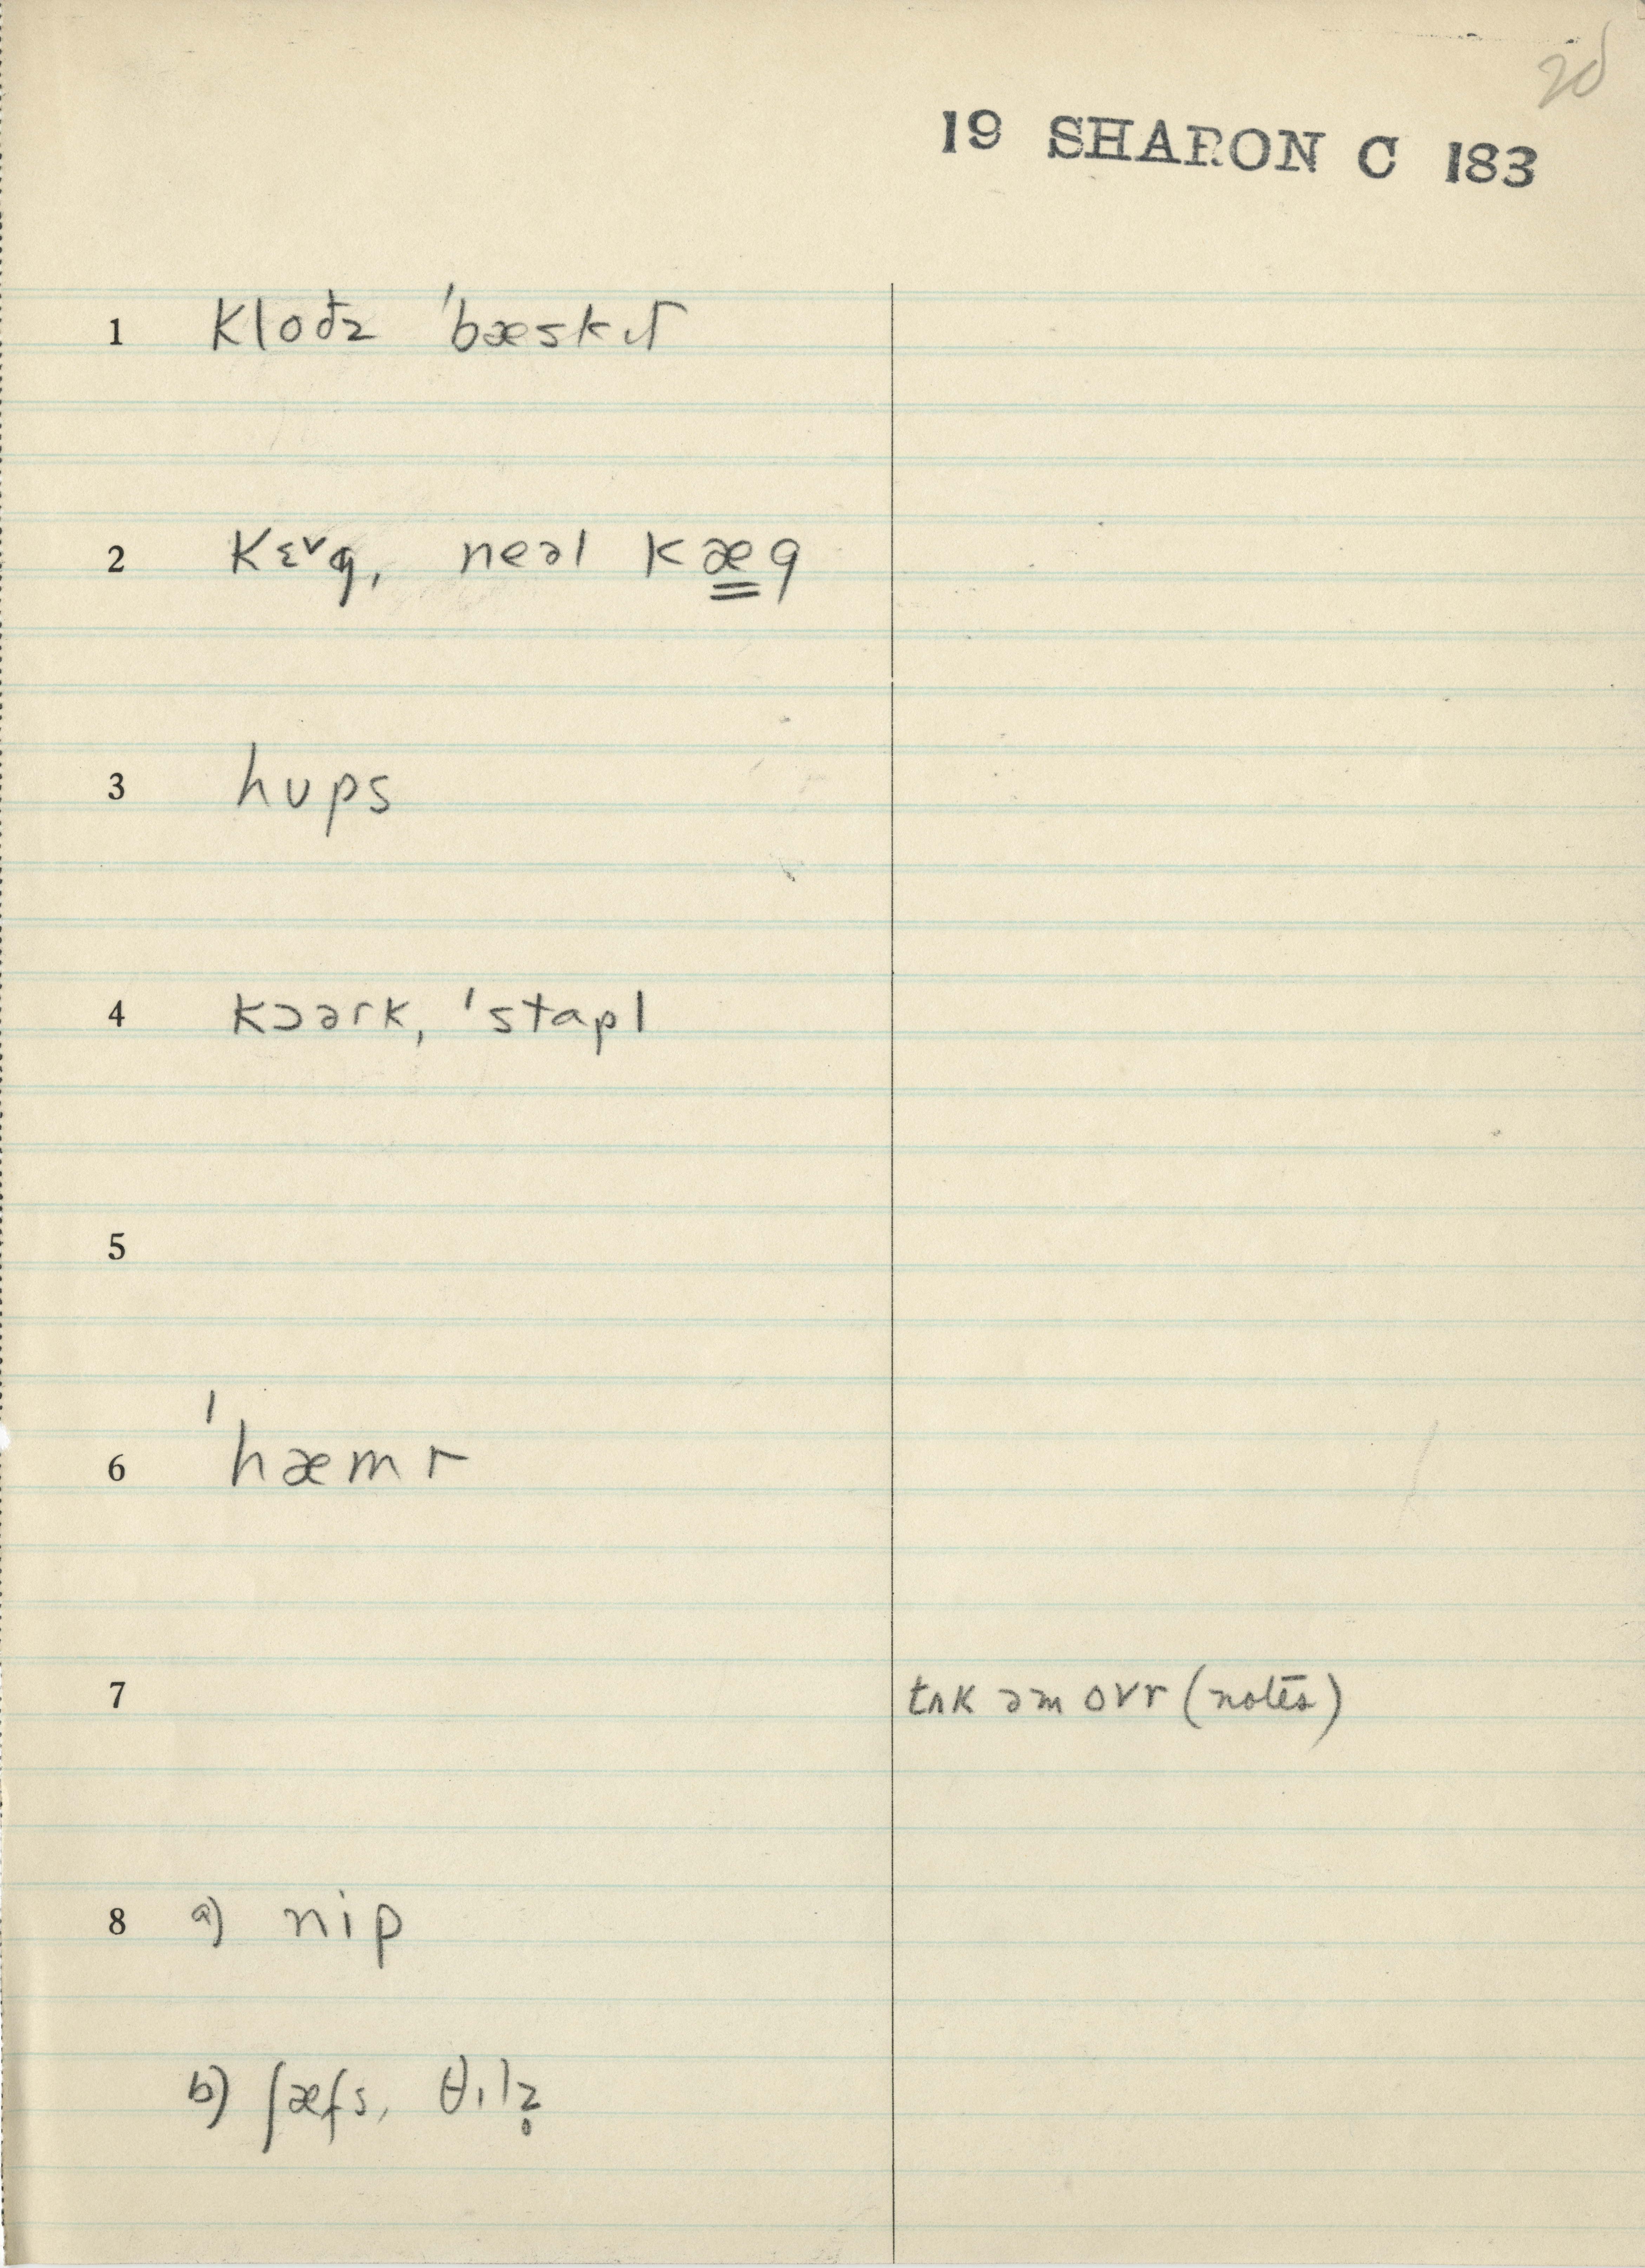 20
19 SHARON C 183
1 kloðz ˈbæskɪt
2 kɛ˅g, neəl kæ̳g
3 hups
4 kɔərk, ˈstapl
5
6 ˈhæmr
7 tʌk əm ovr (notes)
8 a) nip
b) ʃæfs, θɪlz̥